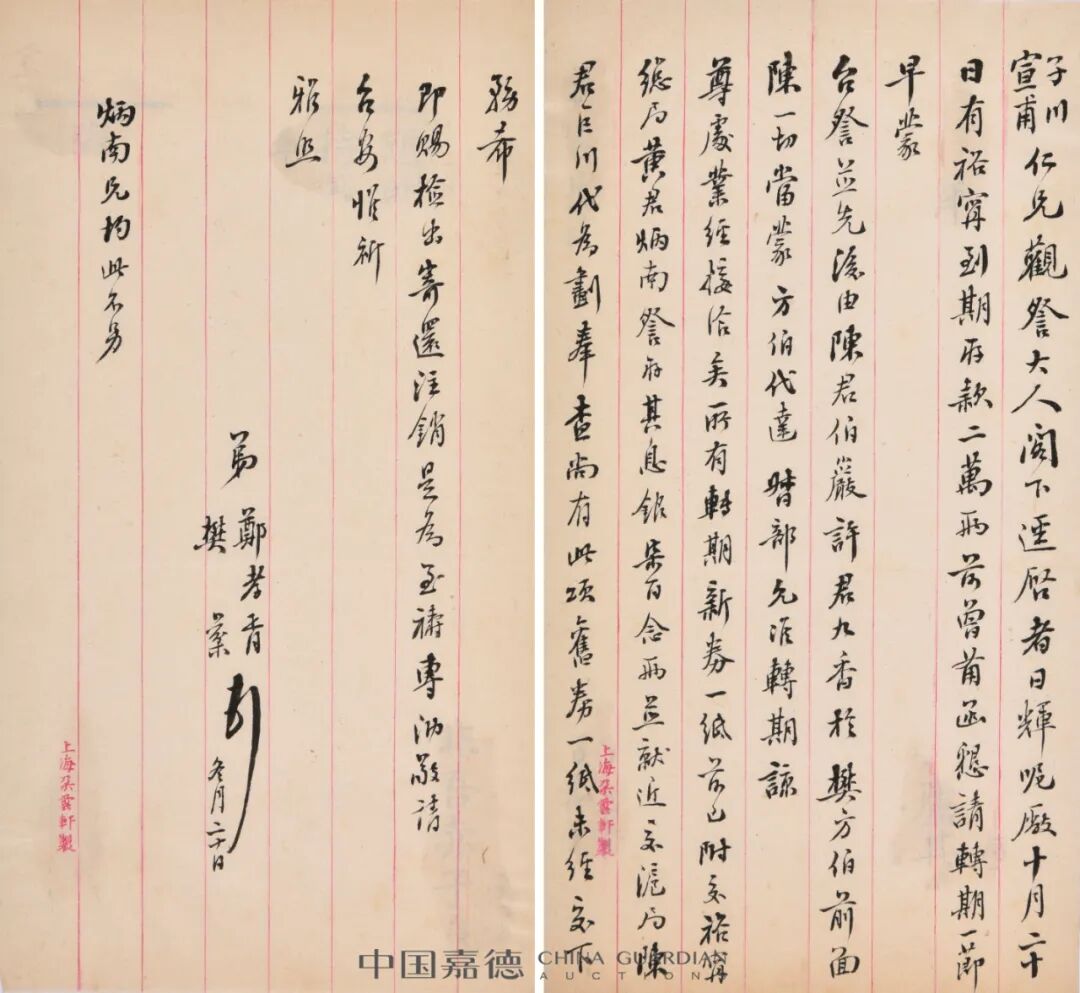 子川
宣甫仁兄觀詧大人閣下逕啓者日輝呢廠十月二十
日有裕寧到期存款二萬兩前曾肅函懇請轉期一節
早蒙
台詧並先後由陳君伯嚴許君九香於樊方伯前面
陳一切當蒙方伯代達督部允准轉期諒
尊處業經接洽矣所有轉期新券一紙前已附交裕寧
總局黃君炳南詧存其息銀柒百念兩並就近交滬局陳
君仁川代為劃奉查尚有此項舊券一紙未經交下
務希
即賜檢出寄還注銷是為至禱專泐敬請
台安惟祈
雅照
弟鄭孝胥
樊棻
冬月二十日
炳南兄均此不另
上海朵雲軒製
上海朵雲軒製
中国嘉德 CHINA GUARDIAN
AUCTION